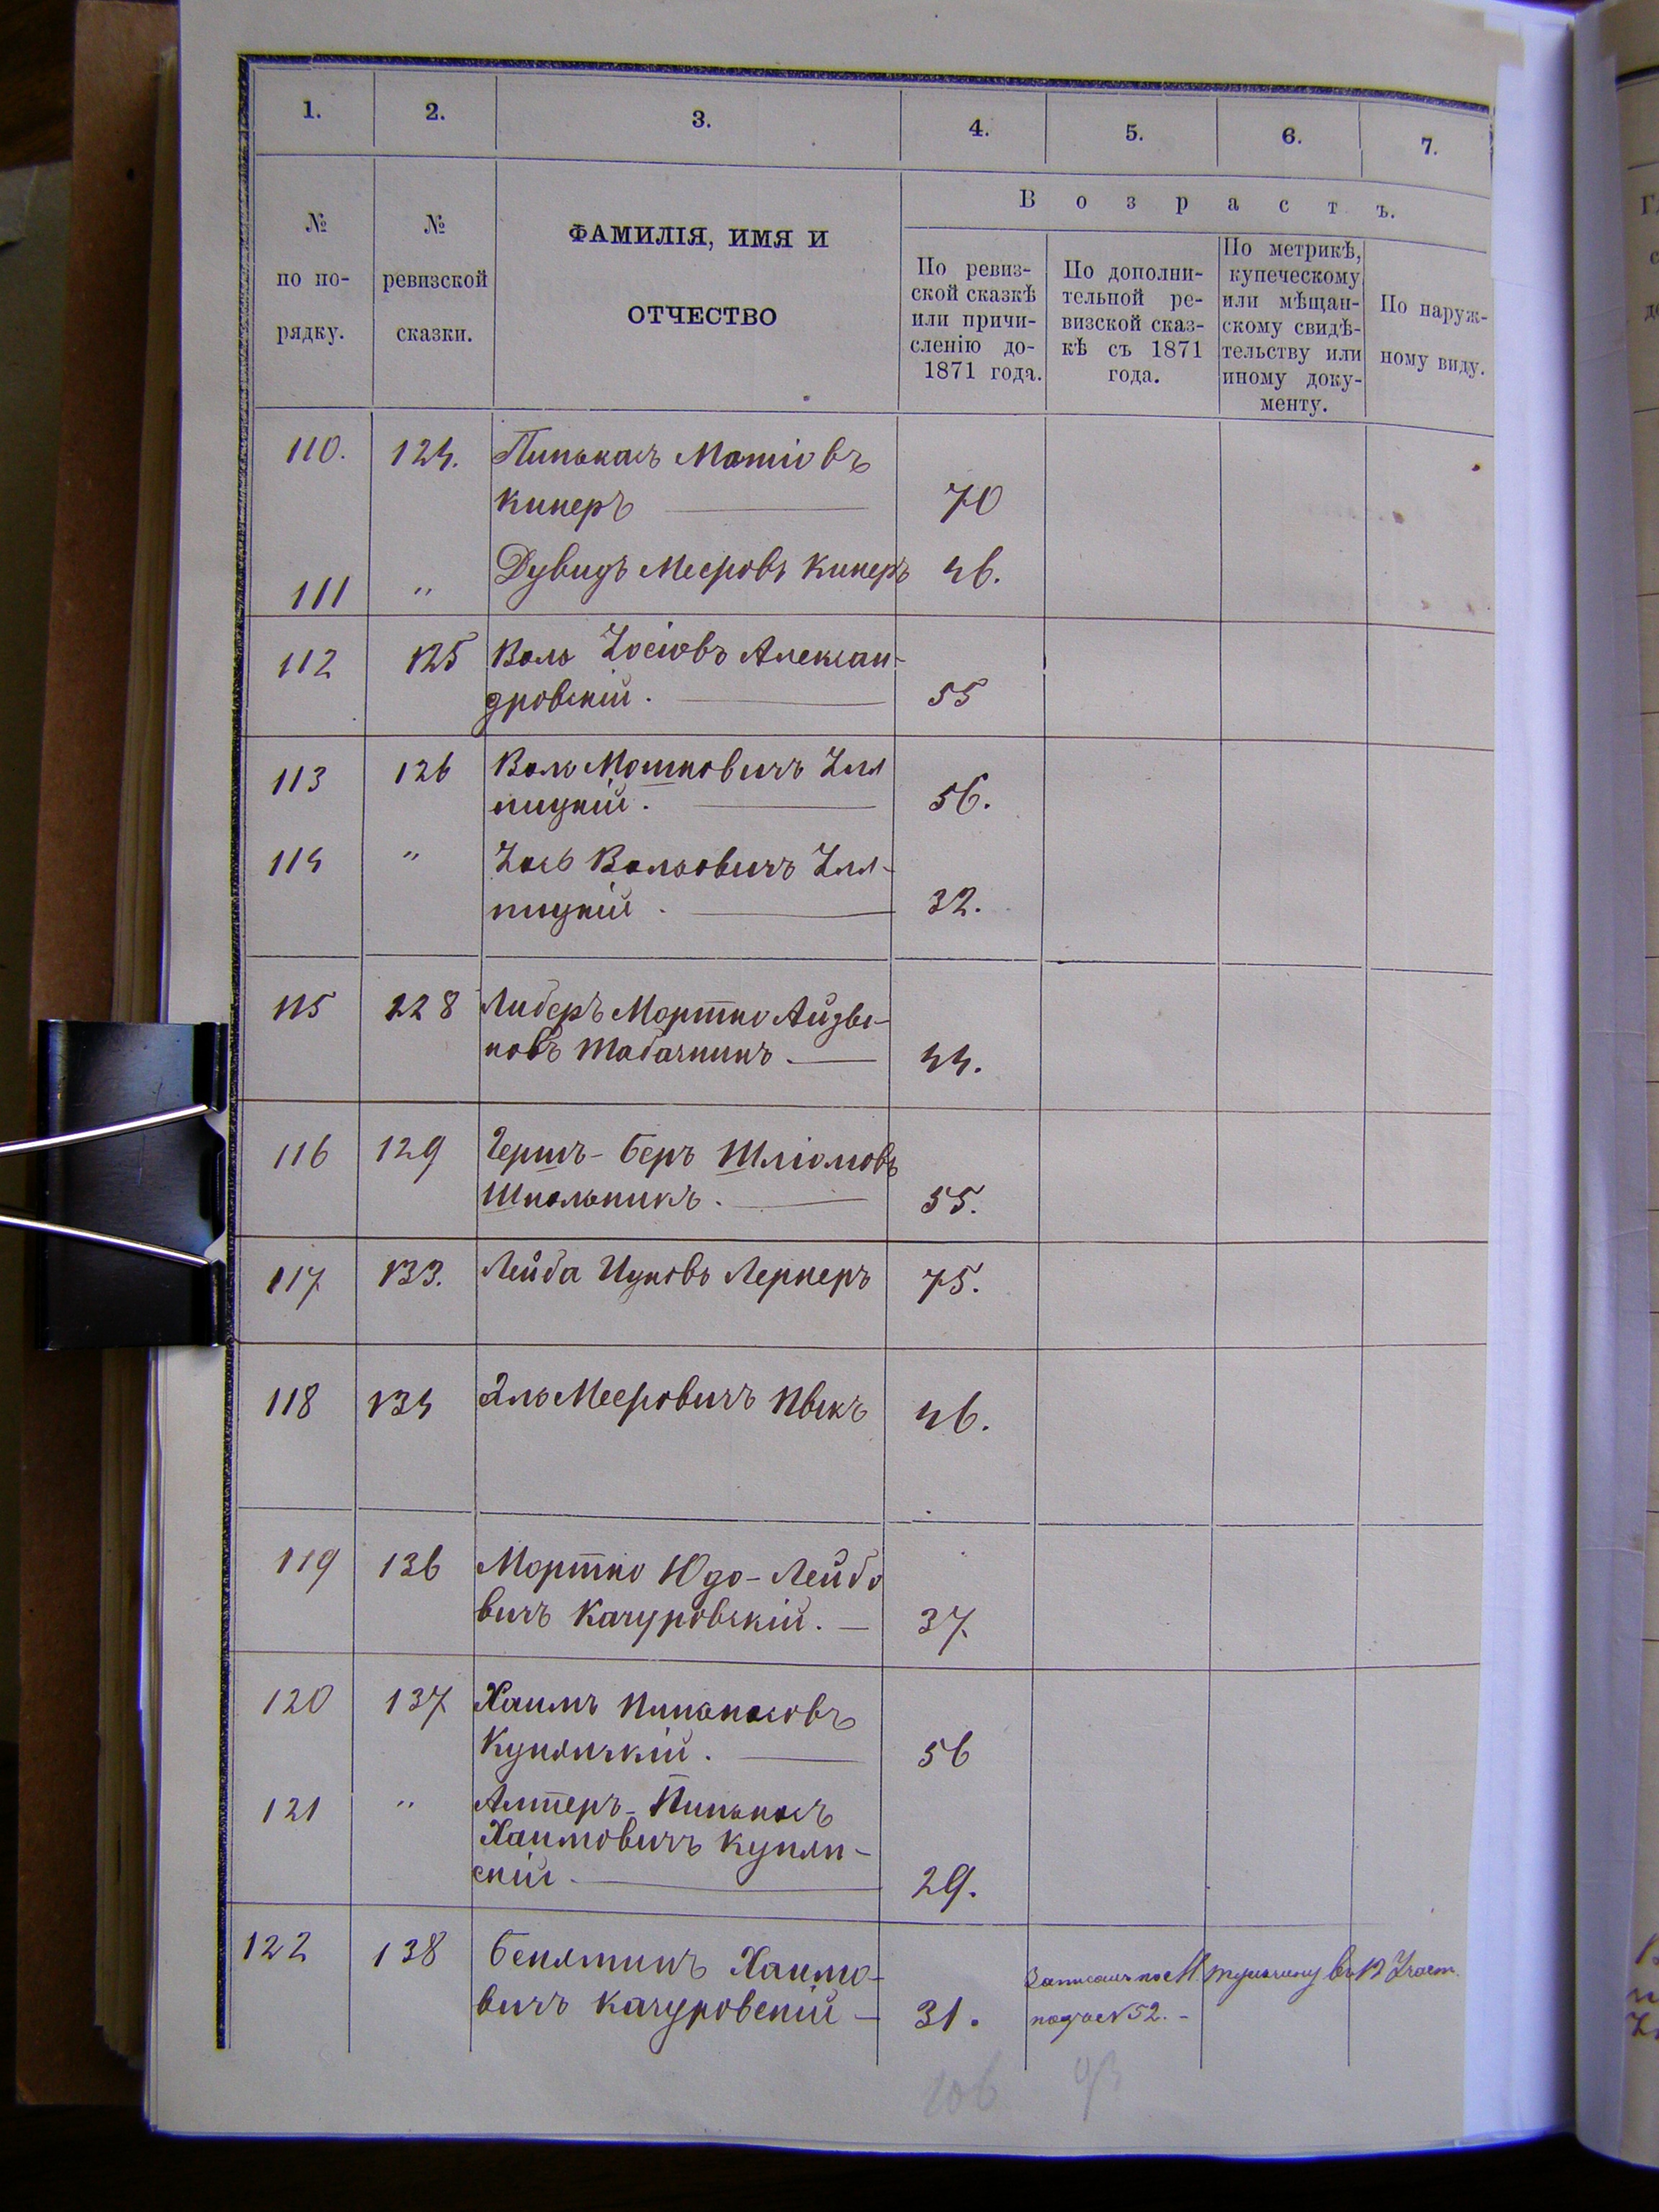 1. 2. 3. 4. 5. 6. 7.
№ по порядку.
№ ревизской сказки.
ФАМИЛІЯ, ИМЯ И
ОТЧЕСТВО
Возрастъ.
По ревиз-
ской сказкѣ
или причи-
сленію до-
1871 года.
По дополни-
тельной ре-
визской сказ-
кѣ съ 1871
года.
По метрикѣ,
купеческому
или мѣщан-
скому свидѣ-
тельству или
иному доку-
менту.
По наруж-
ному виду.
110. 124. Пинькасъ Матіовъ
Киперъ 70
111 " Дувидъ Мееровъ Киперъ 46.
112 125 Воль Іосіовъ Алексан-
дровскій. 55
113 126 Воль Мошковичъ Ілл
ницкій. 56.
114 " Іось Вольовичъ Ілл-
ницкій. 32.
115 128 Либеръ Мортко Айзы-
ковъ Табачникъ 44.
116 129 Гершъ-Беръ Шліомовъ
Школьникъ. 55.
117 133. Лейба Ицковъ Лернеръ 75.
118 134 Эль Мееровичъ 46.
119 136 Мортко Юдо-Лейбо
вичъ Качуровскій. 37.
120 137 Хаимъ Пинькасовъ
56
121 " Алтеръ-Пинькасъ
Хаимовичъ
скій 29.
122 138 Беняминъ Хаимо-
вичъ Качуровскій 31. Записанъ по въ 12 Участ.
подъ №52.
106